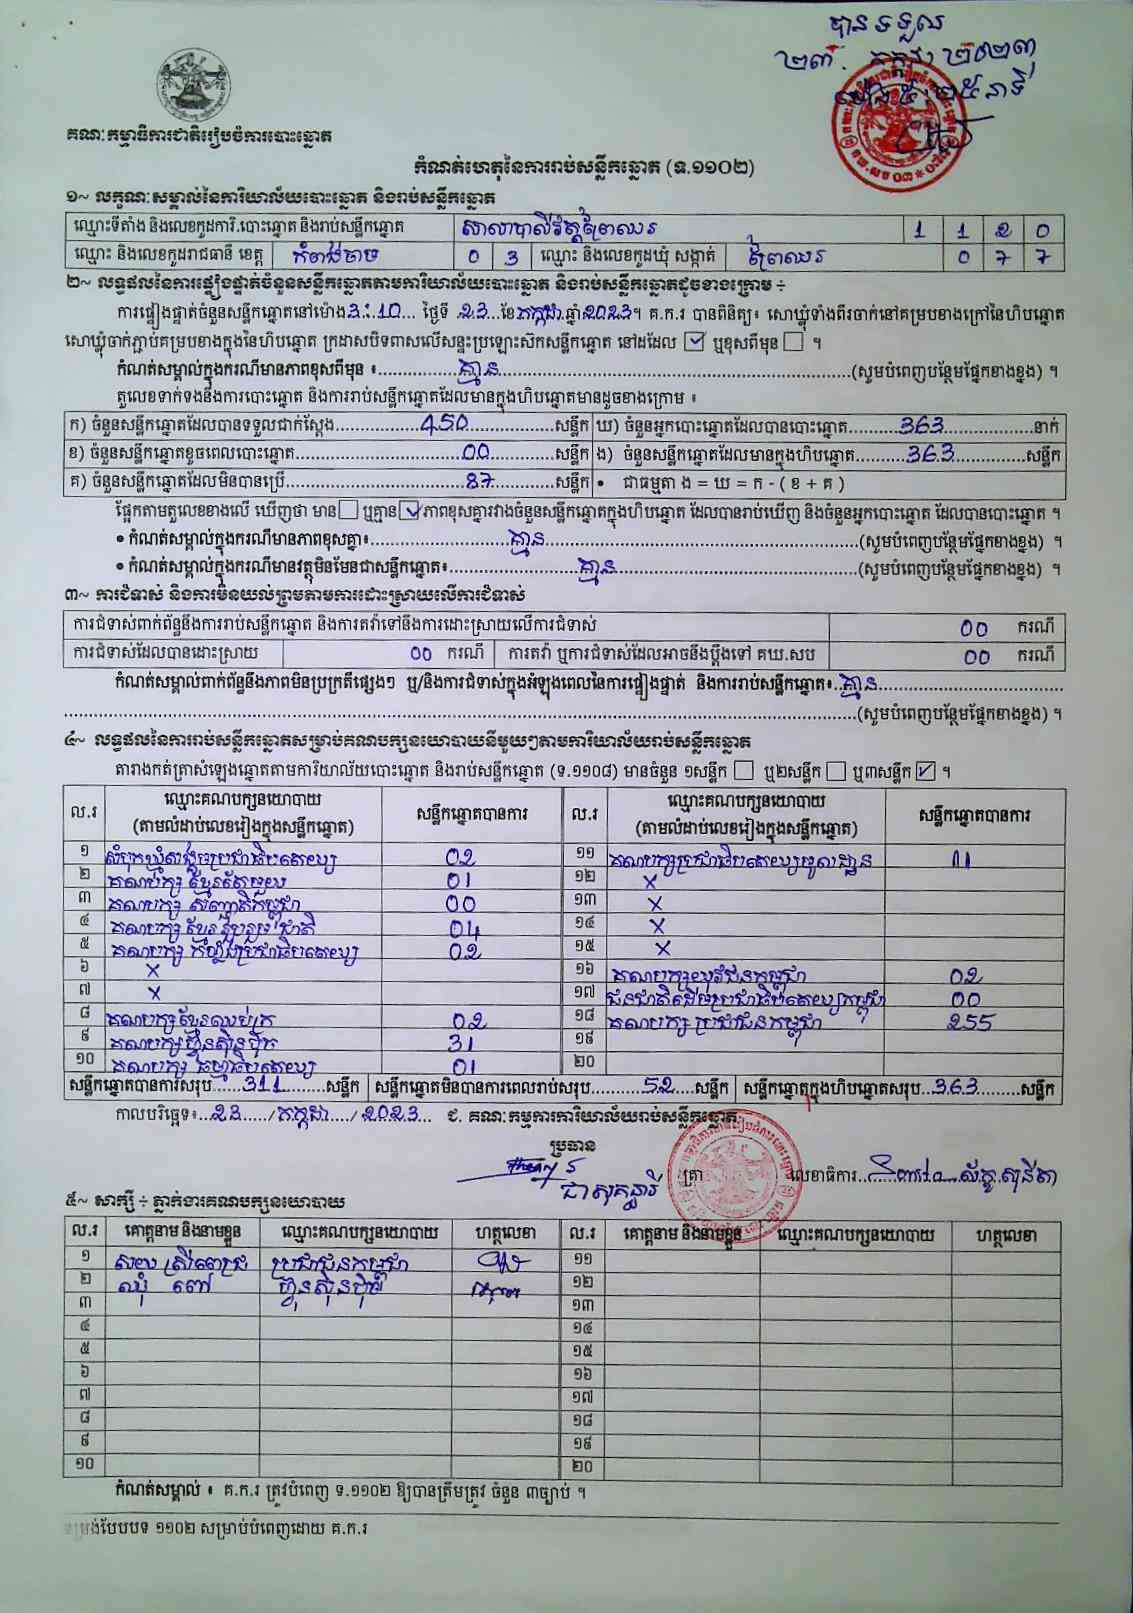 បានទទួល
២៣. កក្កដា ២០២៣
ម៉ោង ៥:២៥ នាទី
គណៈកម្មាធិការជាតិរៀបចំការបោះឆ្នោត
កំណត់ហេតុនៃការរាប់សន្លឹកឆ្នោត (ទ.១១០២)
១~ លក្ខណៈសម្គាល់នៃការិយាល័យបោះឆ្នោត និងរាប់សន្លឹកឆ្នោត
ឈ្មោះទីតាំង និងលេខកូដការិ.បោះឆ្នោត និងរាប់សន្លឹកឆ្នោត សាលាបាលីវត្តព្រៃឈរ 1 1 2 0
ឈ្មោះ និងលេខកូដរាជធានី ខេត្ត កំពង់ចាម 0 3 ឈ្មោះ និងលេខកូដឃុំ សង្កាត់ ព្រៃឈរ 0 7 7
២~ លទ្ធផលនៃការផ្ទៀងផ្ទាត់ចំនួនសន្លឹកឆ្នោតតាមការិយាល័យបោះឆ្នោត និងរាប់សន្លឹកឆ្នោតដូចខាងក្រោម ÷
ការផ្ទៀងផ្ទាត់ចំនួនសន្លឹកឆ្នោតនៅម៉ោង 3:10 ថ្ងៃទី 23 ខែ កក្កដា ឆ្នាំ 2023 ។ គ.ក.រ បានពិនិត្យ៖ សោឃ្លុំទាំងពីរចាក់នៅគម្របខាងក្រៅនៃហិបឆ្នោត
សោឃ្លុំចាក់ភ្ជាប់គម្របខាងក្នុងនៃហិបឆ្នោត ក្រដាសបិទពាសលើសន្ទះប្រឡោះស៊កសន្លឹកឆ្នោត នៅដដែល ☑ ឬខុសពីមុន ☐ ។
កំណត់សម្គាល់ក្នុងករណីមានភាពខុសពីមុន ៖ គ្មាន (សូមបំពេញបន្ថែមផ្នែកខាងខ្នង) ។
តួលេខទាក់ទងនឹងការបោះឆ្នោត និងការរាប់សន្លឹកឆ្នោតដែលមានក្នុងហិបឆ្នោតមានដូចខាងក្រោម ៖
ក) ចំនួនសន្លឹកឆ្នោតដែលបានទទួលជាក់ស្តែង 450 សន្លឹក ឃ) ចំនួនអ្នកបោះឆ្នោតដែលបានបោះឆ្នោត 363 នាក់
ខ) ចំនួនសន្លឹកឆ្នោតខូចពេលបោះឆ្នោត 00 សន្លឹក ង) ចំនួនសន្លឹកឆ្នោតដែលមានក្នុងហិបឆ្នោត 363 សន្លឹក
គ) ចំនួនសន្លឹកឆ្នោតដែលមិនបានប្រើ 87 សន្លឹក • ជាធម្មតា ង = ឃ = ក - ( ខ + គ )
ផ្អែកតាមតួលេខខាងលើ ឃើញថា មាន ☐ ឬគ្មាន ☑ ភាពខុសគ្នារវាងចំនួនសន្លឹកឆ្នោតក្នុងហិបឆ្នោត ដែលបានរាប់ឃើញ និងចំនួនអ្នកបោះឆ្នោត ដែលបានបោះឆ្នោត ។
• កំណត់សម្គាល់ក្នុងករណីមានភាពខុសគ្នា៖ គ្មាន (សូមបំពេញបន្ថែមផ្នែកខាងខ្នង) ។
• កំណត់សម្គាល់ក្នុងករណីមានវត្ថុមិនមែនជាសន្លឹកឆ្នោត៖ គ្មាន (សូមបំពេញបន្ថែមផ្នែកខាងខ្នង) ។
៣~ ការជំទាស់ និងការមិនយល់ព្រមតាមការដោះស្រាយលើការជំទាស់
ការជំទាស់ពាក់ព័ន្ធនឹងការរាប់សន្លឹកឆ្នោត និងការតវ៉ាទៅនឹងការដោះស្រាយលើការជំទាស់ 00 ករណី
ការជំទាស់ដែលបានដោះស្រាយ 00 ករណី ការតវ៉ា ឬការជំទាស់ដែលអាចនឹងប្តឹងទៅ គឃ.សប 00 ករណី
កំណត់សម្គាល់ពាក់ព័ន្ធនឹងភាពមិនប្រក្រតីផ្សេងៗ ឬ/និងការជំទាស់ក្នុងអំឡុងពេលនៃការផ្ទៀងផ្ទាត់ និងការរាប់សន្លឹកឆ្នោត៖ គ្មាន
(សូមបំពេញបន្ថែមផ្នែកខាងខ្នង) ។
៤~ លទ្ធផលនៃការរាប់សន្លឹកឆ្នោតសម្រាប់គណបក្សនយោបាយនីមួយៗតាមការិយាល័យរាប់សន្លឹកឆ្នោត
តារាងកត់ត្រាសំឡេងឆ្នោតតាមការិយាល័យបោះឆ្នោត និងរាប់សន្លឹកឆ្នោត (ទ.១១០៨) មានចំនួន ១សន្លឹក ☐ ឬ២សន្លឹក ☐ ឬ៣សន្លឹក ☑ ។
ល.រ ឈ្មោះគណបក្សនយោបាយ (តាមលំដាប់លេខរៀងក្នុងសន្លឹកឆ្នោត) សន្លឹកឆ្នោតបានការ ល.រ ឈ្មោះគណបក្សនយោបាយ (តាមលំដាប់លេខរៀងក្នុងសន្លឹកឆ្នោត) សន្លឹកឆ្នោតបានការ
១ សំបុកឃ្មុំសង្គមប្រជាធិបតេយ្យ 02 ១១ គណបក្សប្រជាធិបតេយ្យមូលដ្ឋាន 11
២ គណបក្ស ខ្មែរតែមួយ 01 ១២ x
៣ គណបក្ស សញ្ជាតិកម្ពុជា 00 ១៣ x
៤ គណបក្ស ខ្មែររួបរួមជាតិ 04 ១៤ x
៥ គណបក្ស កម្លាំងប្រជាធិបតេយ្យ 02 ១៥ x
៦ x ១៦ គណបក្សយុវជនកម្ពុជា 02
៧ x ១៧ ជនជាតិដើមប្រជាធិបតេយ្យកម្ពុជា 00
៨ គណបក្សខ្មែរឈប់ក្រ 02 ១៨ គណបក្ស ប្រជាជនកម្ពុជា 255
៩ គណបក្សហ៊្វុនស៊ិនប៉ិច 31 ១៩
១០ គណបក្ស ធម្មាធិបតេយ្យ 01 ២០
សន្លឹកឆ្នោតបានការសរុប 311 សន្លឹក សន្លឹកឆ្នោតមិនបានការពេលរាប់សរុប 52 សន្លឹក សន្លឹកឆ្នោតក្នុងហិបឆ្នោតសរុប 363 សន្លឹក
កាលបរិច្ឆេទ៖ 23 / កក្កដា / 2023 ជ. គណៈកម្មការការិយាល័យរាប់សន្លឹកឆ្នោត
ប្រធាន
ត្រា លេខាធិការ
៥~ សាក្សី ÷ ភ្នាក់ងារគណបក្សនយោបាយ
ល.រ គោត្តនាម និងនាមខ្លួន ឈ្មោះគណបក្សនយោបាយ ហត្ថលេខា ល.រ គោត្តនាម និងនាមខ្លួន ឈ្មោះគណបក្សនយោបាយ ហត្ថលេខា
១ សយ ស្រីពេជ្រ ប្រជាជនកម្ពុជា ១១
២ ឈុំ ពៅ ហ៊្វុនស៊ិនប៉ិច ១២
៣ ១៣
៤ ១៤
៥ ១៥
៦ ១៦
៧ ១៧
៨ ១៨
៩ ១៩
១០ ២០
កំណត់សម្គាល់ ៖ គ.ក.រ ត្រូវបំពេញ ទ.១១០២ ឱ្យបានត្រឹមត្រូវ ចំនួន ៣ច្បាប់ ។
ទម្រង់បែបបទ ១១០២ សម្រាប់បំពេញដោយ គ.ក.រ